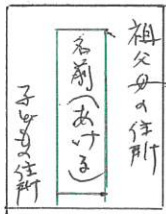 祖父母の住所
名前(あける)
子どもの住所